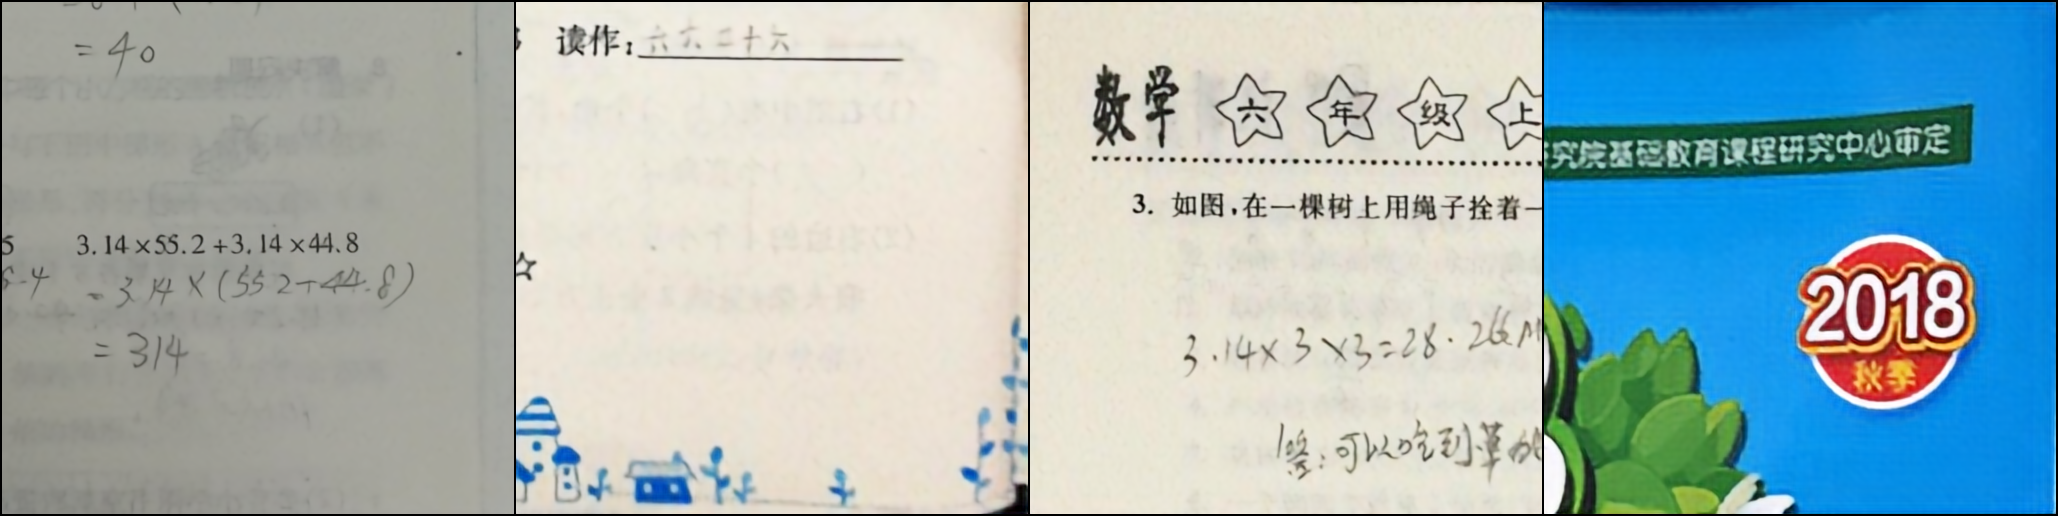 = 40
5 3.14×55.2+3.14×44.8
6.4 = 3.14×(55.2+44.8)
= 314
读作: 六六二十六
☆
数学 六年级上
3. 如图,在一棵树上用绳子拴着一
3.14×3×3=28.26
答:可以吃到草的
究院基础教育课程研究中心审定
2018
秋季